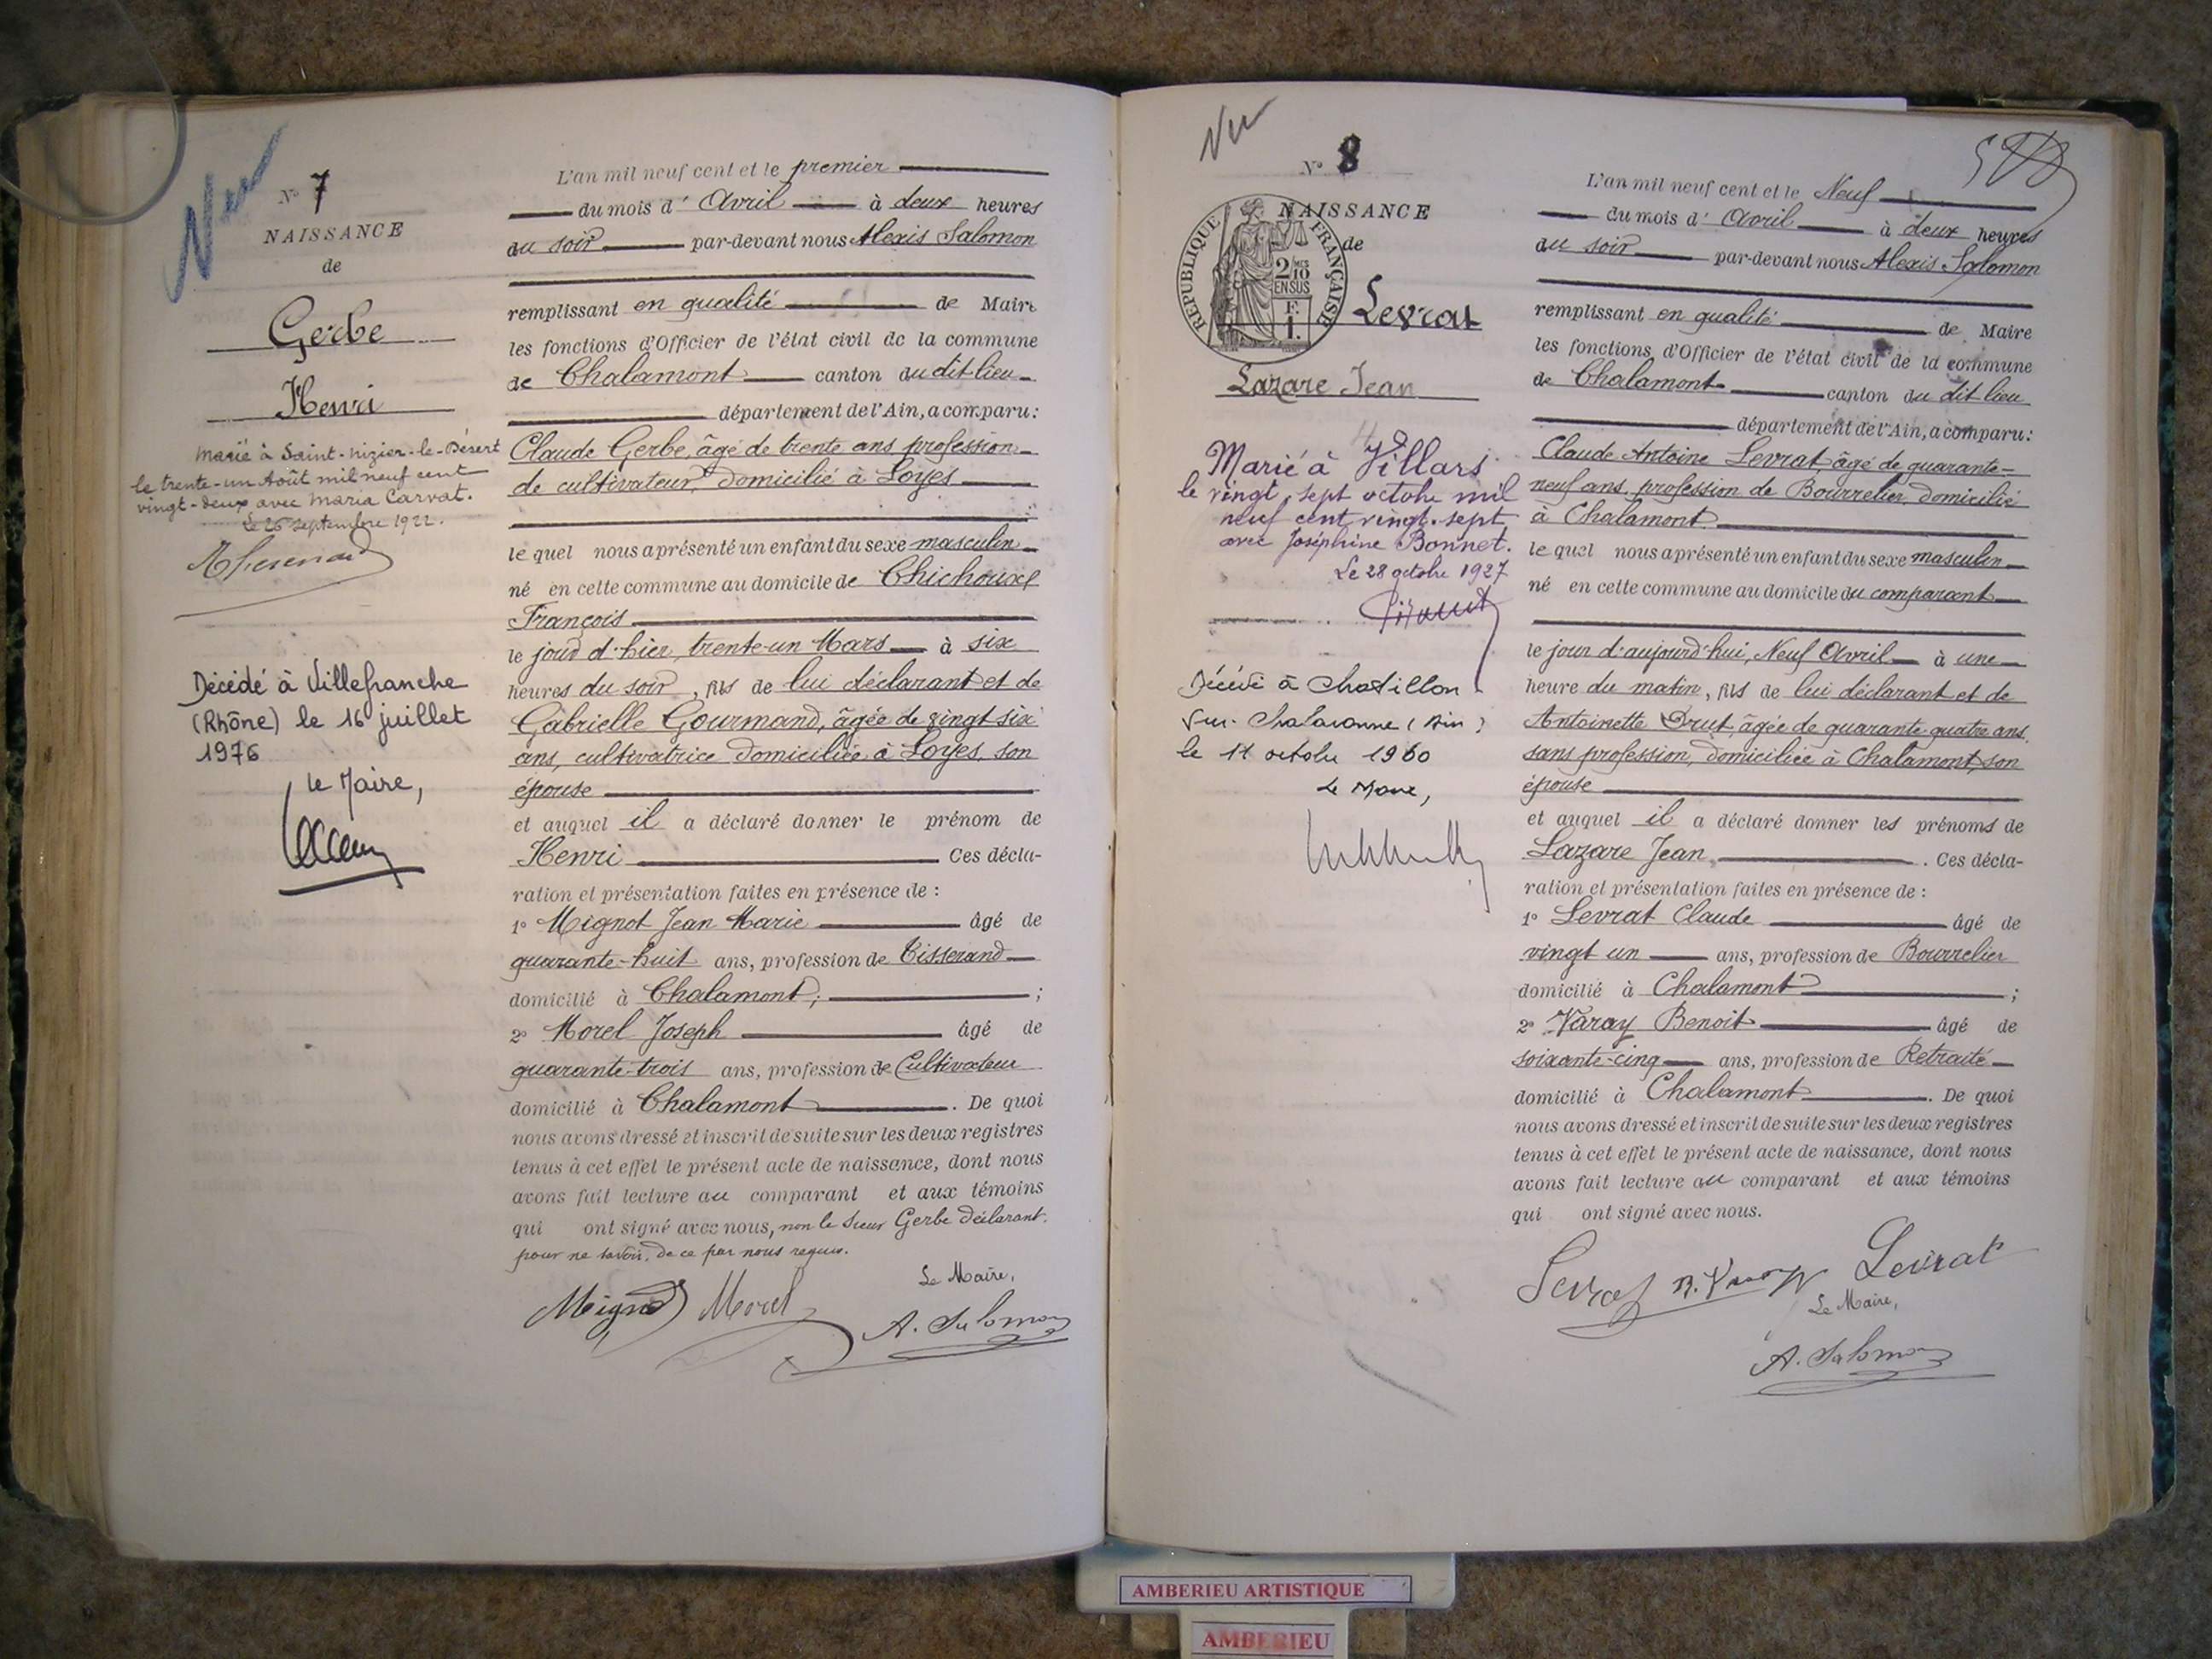 N° 7
NAISSANCE
de
Gerbe
Henri
Marié à Saint-Nizier-le-Désert
le trente-un Août mil neuf cent
vingt-deux avec Maria Carvat.
Le 26 septembre 1922.
Décédé à Villefranche
(Rhône) le 16 juillet
1976
Le Maire,
L'an mil neuf cent et le premier
du mois d'Avril à deux heures
du soir par-devant nous Alexis Salomon
remplissant en qualité de Maire
les fonctions d'Officier de l'état civil de la commune
de Chalamont canton du dit lieu
département de l'Ain, a comparu:
Claude Gerbe, âgé de trente ans profession
de cultivateur, domicilié à Loyes
le quel nous a présenté un enfant du sexe masculin
né en cette commune au domicile de Chichoux
François
le jour d'hier, trente-un Mars à six
heures du soir, fils de lui déclarant et de
Gabrielle Gourmand, âgée de vingt six
ans, cultivatrice domiciliée à Loyes, son
épouse
et auquel il a déclaré donner le prénom de
Henri Ces décla-
ration et présentation faites en présence de :
1° Mignot Jean Marie âgé de
quarante-huit ans, profession de Tisserand
domicilié à Chalamont, ;
2° Morel Joseph âgé de
quarante-trois ans, profession de Cultivateur
domicilié à Chalamont . De quoi
nous avons dressé et inscrit de suite sur les deux registres
tenus à cet effet le présent acte de naissance, dont nous
avons fait lecture au comparant et aux témoins
qui ont signé avec nous, non le sieur Gerbe déclarant.
pour ne savoir, de ce par nous requis.
Le Maire,
Mignot Morel A. Salomon
Vu
N° 8
NAISSANCE
de
REPUBLIQUE FRANÇAISE
2/10
EN SUS
F.
1.
Levrat
Lazare Jean
Marié à Villars
le vingt-sept octobre mil
neuf cent vingt-sept
avec Joséphine Bonnet.
Le 28 octobre 1927
Décédé à Chatillon
sur Chalaronne (Ain)
le 11 octobre 1960
Le Maire,
L'an mil neuf cent et le Neuf
du mois d'Avril à deux heures
du soir par-devant nous Alexis Salomon
remplissant en qualité de Maire
les fonctions d'Officier de l'état civil de la commune
de Chalamont canton du dit lieu
département de l'Ain, a comparu:
Claude Antoine Levrat, âgé de quarante-
neuf ans, profession de Bourrelier, domicilié
à Chalamont
le quel nous a présenté un enfant du sexe masculin
né en cette commune au domicile du comparant
le jour d'aujourd'hui, Neuf Avril à une
heure du matin, fils de lui déclarant et de
Antoinette Drut, âgée de quarante quatre ans,
sans profession, domiciliée à Chalamont, son
épouse
et auquel il a déclaré donner les prénoms de
Lazare Jean . Ces décla-
ration et présentation faites en présence de :
1° Levrat Claude âgé de
vingt un ans, profession de Bourrelier
domicilié à Chalamont ;
2° Varay Benoit âgé de
soixante-cinq ans, profession de Retraité
domicilié à Chalamont . De quoi
nous avons dressé et inscrit de suite sur les deux registres
tenus à cet effet le présent acte de naissance, dont nous
avons fait lecture au comparant et aux témoins
qui ont signé avec nous.
Levrat B. Varay Levrat
Le Maire,
A. Salomon
AMBERIEU ARTISTIQUE
AMBERIEU